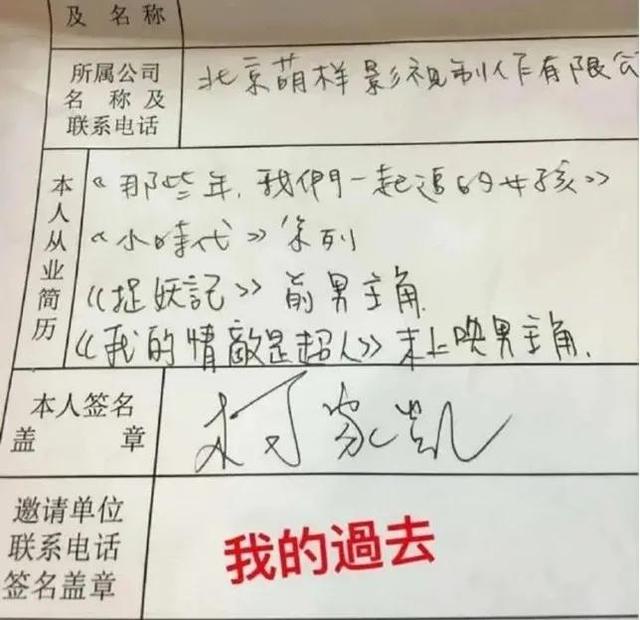 及 名 称
所属公司
名 称 及
联系电话
北京萌样影视制作有限公
本人从业简历
《那些年,我們一起追的女孩》
《小時代》系列
《捉妖記》前男主角
《我的情敵是超人》未上映男主角.
本人签名
盖 章
柯家凯
邀请单位
联系电话
签名盖章
我的過去